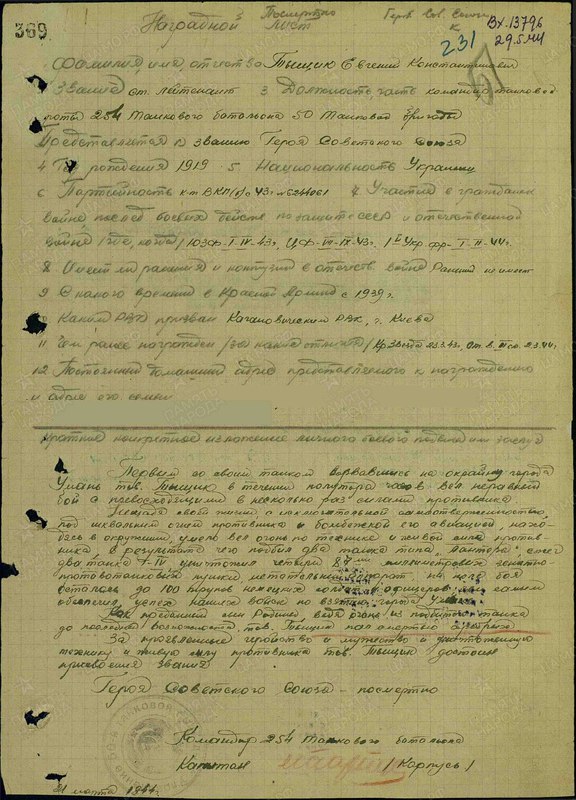 369
Посмертно
Наградной Лист
Герв Сов. Союза
к
231
Вх-13796
29.5.44
Фамилия, имя отчество Тыщик Евгений Константинович
Звание ст. лейтенант 3 Должность часть командир танковой
роты 254 Танкового батальона 50 Танковой бригады
Представляется к званию Героя Советского Союза
4 Год рождения 1919 5 Национальность Украинец
6 Партийность ВКП(б) с 43г. №6244061 7 Участие в гражданск
войне, послед боевых действ по защите СССР и отечественной
войне (где, когда) ЮЗФ-I-IV-43г, ЦФ-VI-IX-43г. 1й Укр фр-I-II-44г.
8 Имеет ли ранения и контузии в отечеств. войне Ранений не имеет
9 С какого времени в Красной Армии с 1939г.
Каким РВК призван Кагановическим РВК, г. Киева
11 Чем ранее награжден (за какие отличия) Кр Звезда 23.3.43г. От. в. 2.3.44г.
12 Постоянный домашний адрес представляемого к награждению
и адрес его семьи
Краткое конкретное изложение личного боевого подвига или заслуг
Первым со своим танком ворвавшись на окраину города
Умань тов. Тыщик в течении полутора часов вел неравный
бой с превосходящими в несколько раз силами противника
своей жизни с исключительной самоотверженностью
под шквальным огнем противника и бомбежкой его авиации, нахо-
дясь в окружении, умело вел огонь по технике и живой силе против-
ника, в результате чего подбил два танка типа „Пантера", сжег
два танка Т-IV уничтожил четыре миллиметровых зенитно-
противотанковых пушки на поле боя
осталось до 100 трупов немецких солдат и офицеров, чем самым
обеспечил успех наших войск по взятию города Умань
Как преданный сын Родины ведя огонь из подбитого танка
до последней возможности тов. Тыщик пал смертью храбрых
За проявленные геройство и мужество и уничтоженную
технику и живую силу противника тов. Тыщик достоин
присвоения звания
Героя Советского Союза - посмертно
Командир 254 Танкового батальона
Капитан (Карпусь)
31 марта 1944г.